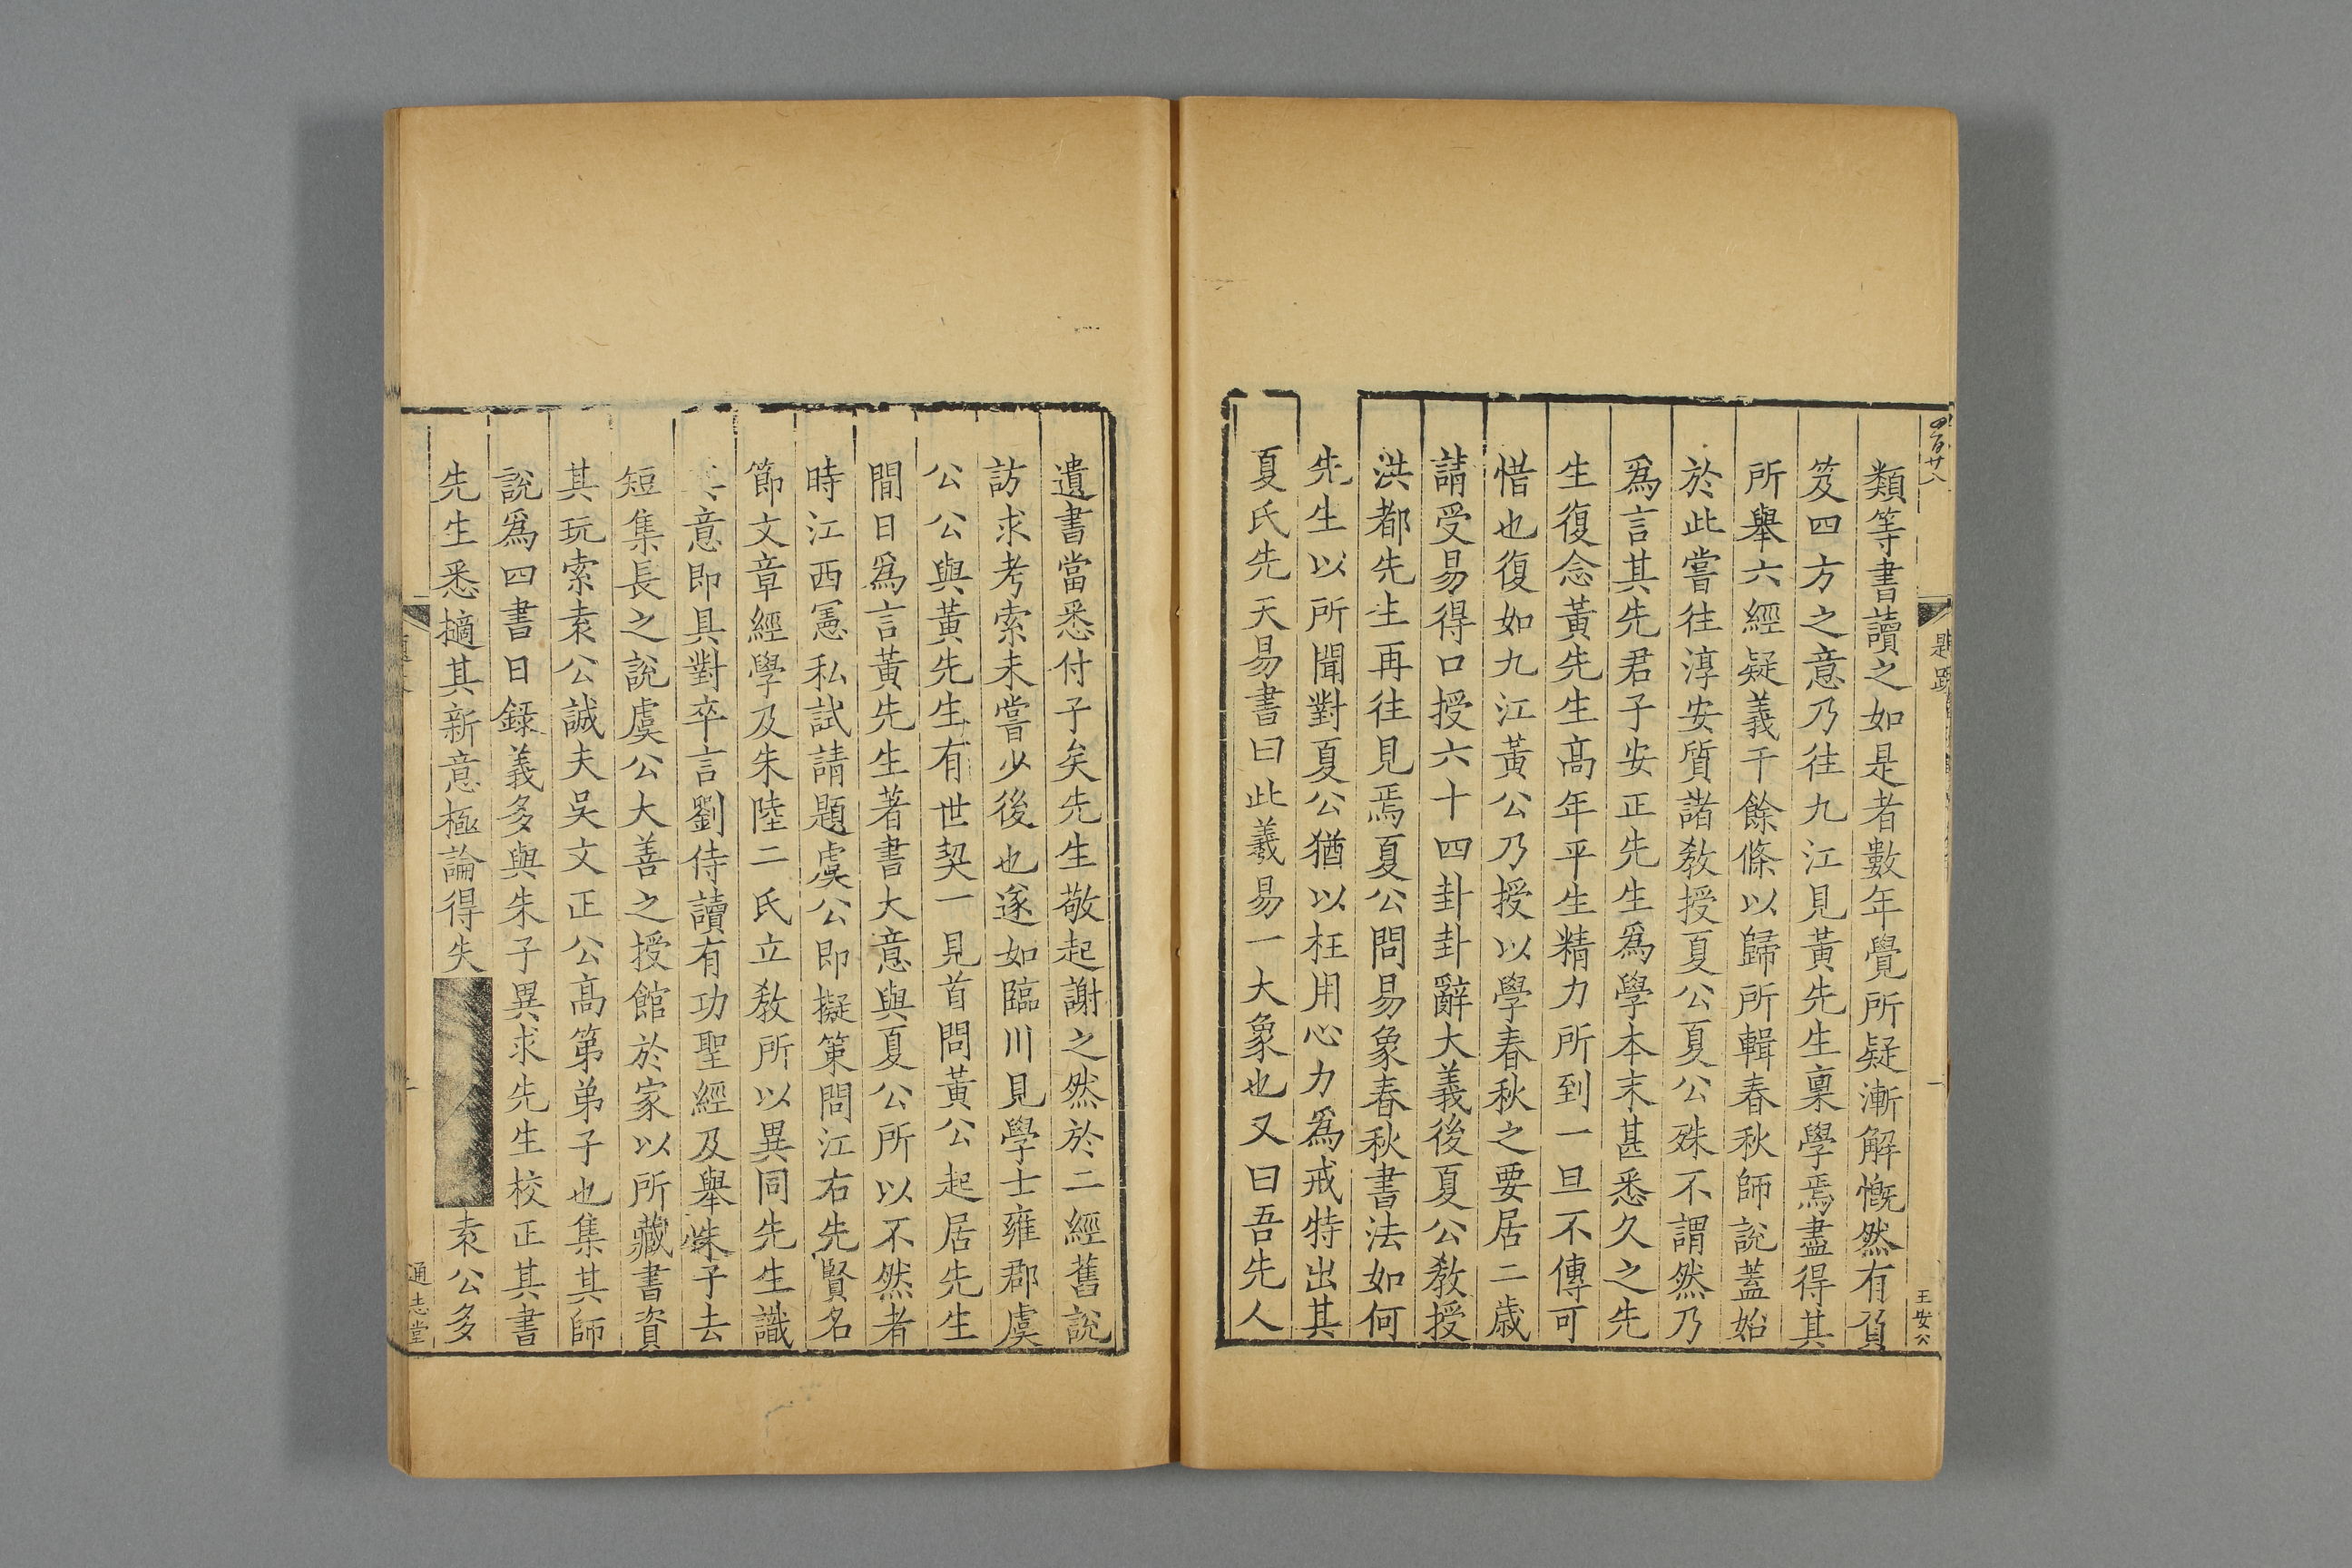 四百廿八
題跋
一
王安公
類等書讀之如是者數年覺所疑漸解慨然有負
笈四方之意乃往九江見黃先生稟學焉盡得其
所舉六經疑義千餘條以歸所輯春秋師說蓋始
於此嘗往淳安質諸教授夏公夏公殊不謂然乃
爲言其先君子安正先生爲學本末甚悉久之先
生復念黃先生髙年平生精力所到一旦不傳可
惜也復如九江黃公乃授以學春秋之要居二歲
請受易得口授六十四卦卦辭大義後夏公敎授
洪都先生再往見焉夏公問易象春秋書法如何
先生以所聞對夏公猶以枉用心力爲戒特出其
夏氏先天易書曰此羲易一大象也又曰吾先人
遺書當悉付子矣先生敬起謝之然於二經舊說
訪求考索未嘗少後也遂如臨川見學士雍郡虞
公公與黃先生有世契一見首問黃公起居先生
間日爲言黃先生著書大意與夏公所以不然者
時江西憲私試請題虞公即擬策問江右先賢名
節文章經學及朱陸二氏立敎所以異同先生識
意即具對卒言劉侍讀有功聖經及舉朱子去
短集長之說虞公大善之授館於家以所藏書資
其玩索袁公誠夫吳文正公髙第弟子也集其師
說爲四書日錄義多與朱子異求先生校正其書
先生悉擿其新意極論得失
袁公多
通志堂